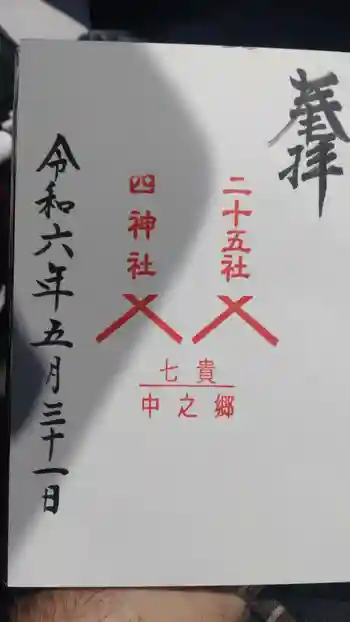 奉拝
二十五社
四神社
七貴
中之郷
令和六年五月三十一日